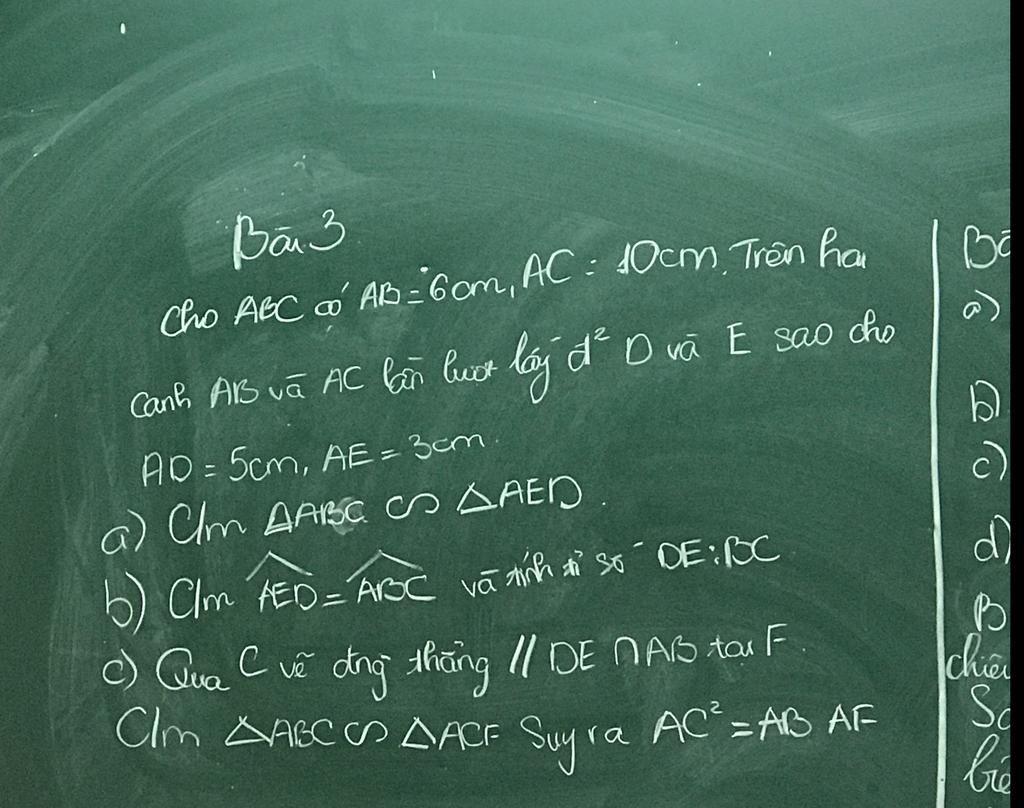 Bài 3
Cho ABC có AB = 6cm, AC = 10cm. Trên hai
cạnh AB và AC lần lượt lấy đ² D và E sao cho
AD = 5cm, AE = 3cm.
a) C/m △ABC ∽ △AED.
b) C/m AED^ = ABC^ và tính tỉ số DE:BC
c) Qua C vẽ đng thẳng // DE ∩ AB tại F.
C/m △ABC ∽ △ACF Suy ra AC² = AB AF
a)
b)
c)
d)